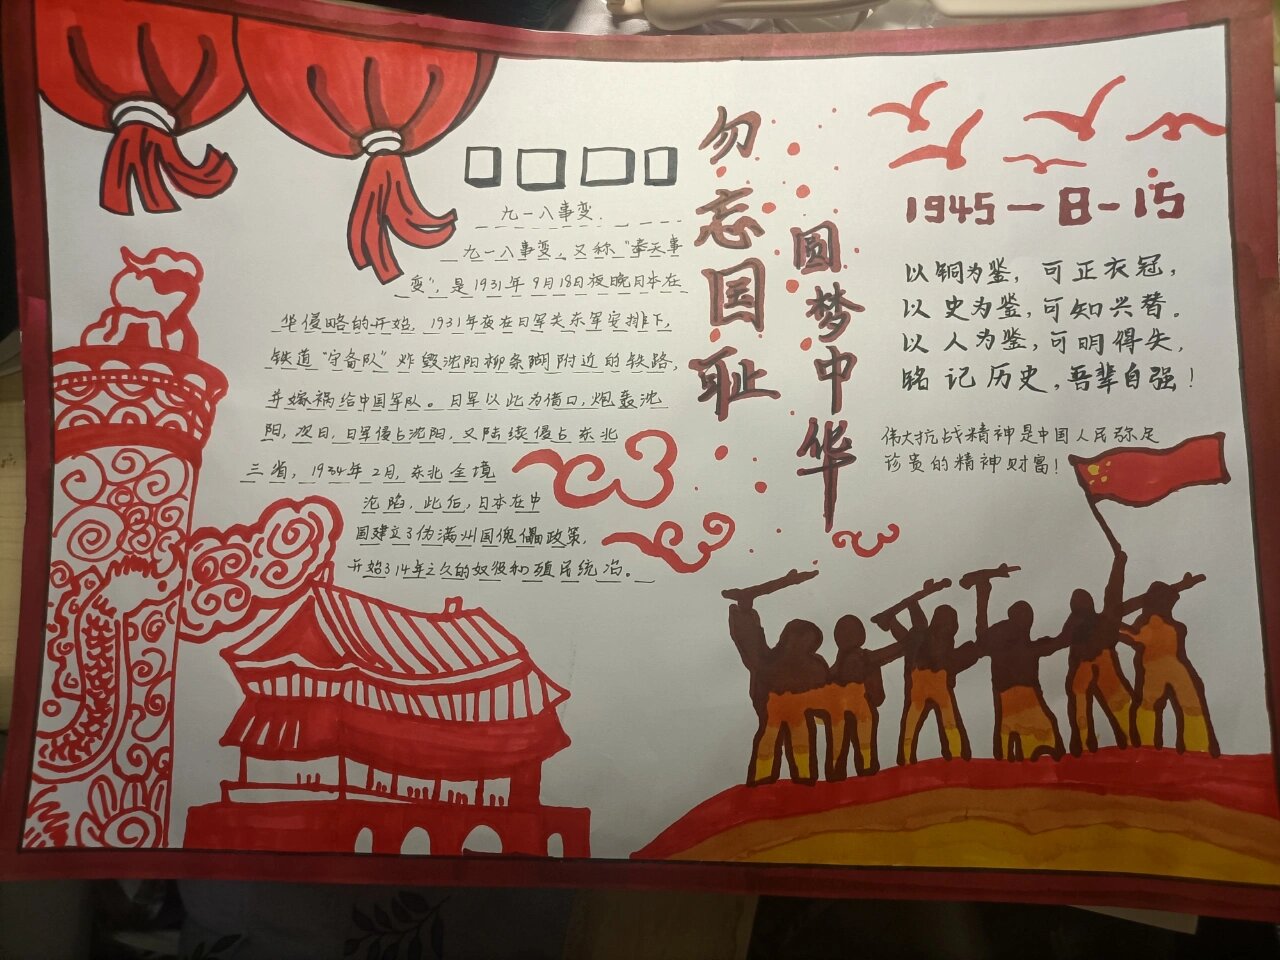 九一八事变.
九一八事变，又称“奉天事
变”，是1931年9月18日夜晚日本在
华侵略的开始，1931年夜在日军关东军安排下，
铁道“守备队”炸毁沈阳柳条湖附近的铁路，
并嫁祸给中国军队。日军以此为借口，炮轰沈
阳，次日，日军侵占沈阳，又陆续侵占东北
三省，1934年2月，东北全境
沦陷，此后，日本在中
国建立了伪满州国傀儡政策，
开始314年之久的奴役和殖民统治。
勿忘国耻
圆梦中华
1945-8-15
以铜为鉴，可正衣冠，
以史为鉴，可知兴替。
以人为鉴，可明得失，
铭记历史，吾辈自强！
伟大抗战精神是中国人民弥足
珍贵的精神财富！